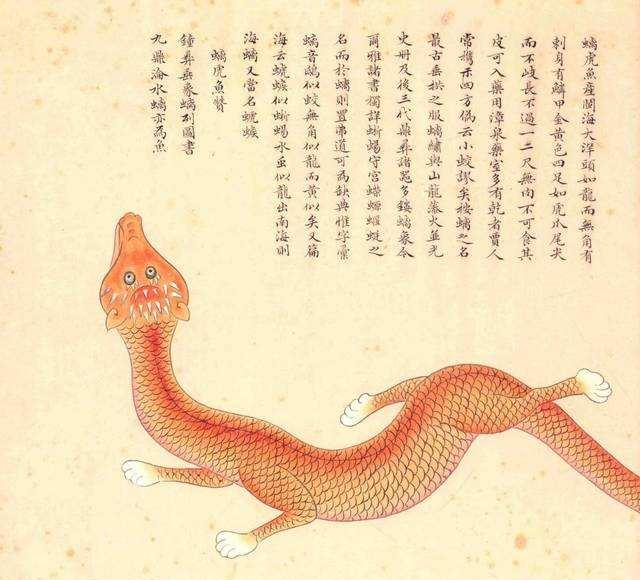 螭虎魚產閩海大洋頭如龍而無角有
刺身有鱗甲金黃色四足如虎爪尾尖
而不歧長不過一二尺無肉不可食其
皮可入藥用漳泉藥室多有乾者賈人
常攜示四方偽云小蛟謬矣按螭之名
最古垂拱之服螭繡與山龍藻火並光
史冊及後三代鼎彝諸器多鏤螭象今
爾雅諸書獨詳蜥蜴守宮蠑螈蝘蜓之
名而於螭則置弗道可為缺典惟字彙
螭音鴟似蛟無角似龍而黃似矣又篇
海云似蜥蜴水蟲似龍出南海則
海螭又當名
螭虎魚贊
鐘彝垂象螭列圖書
九鼎淪水螭亦為魚